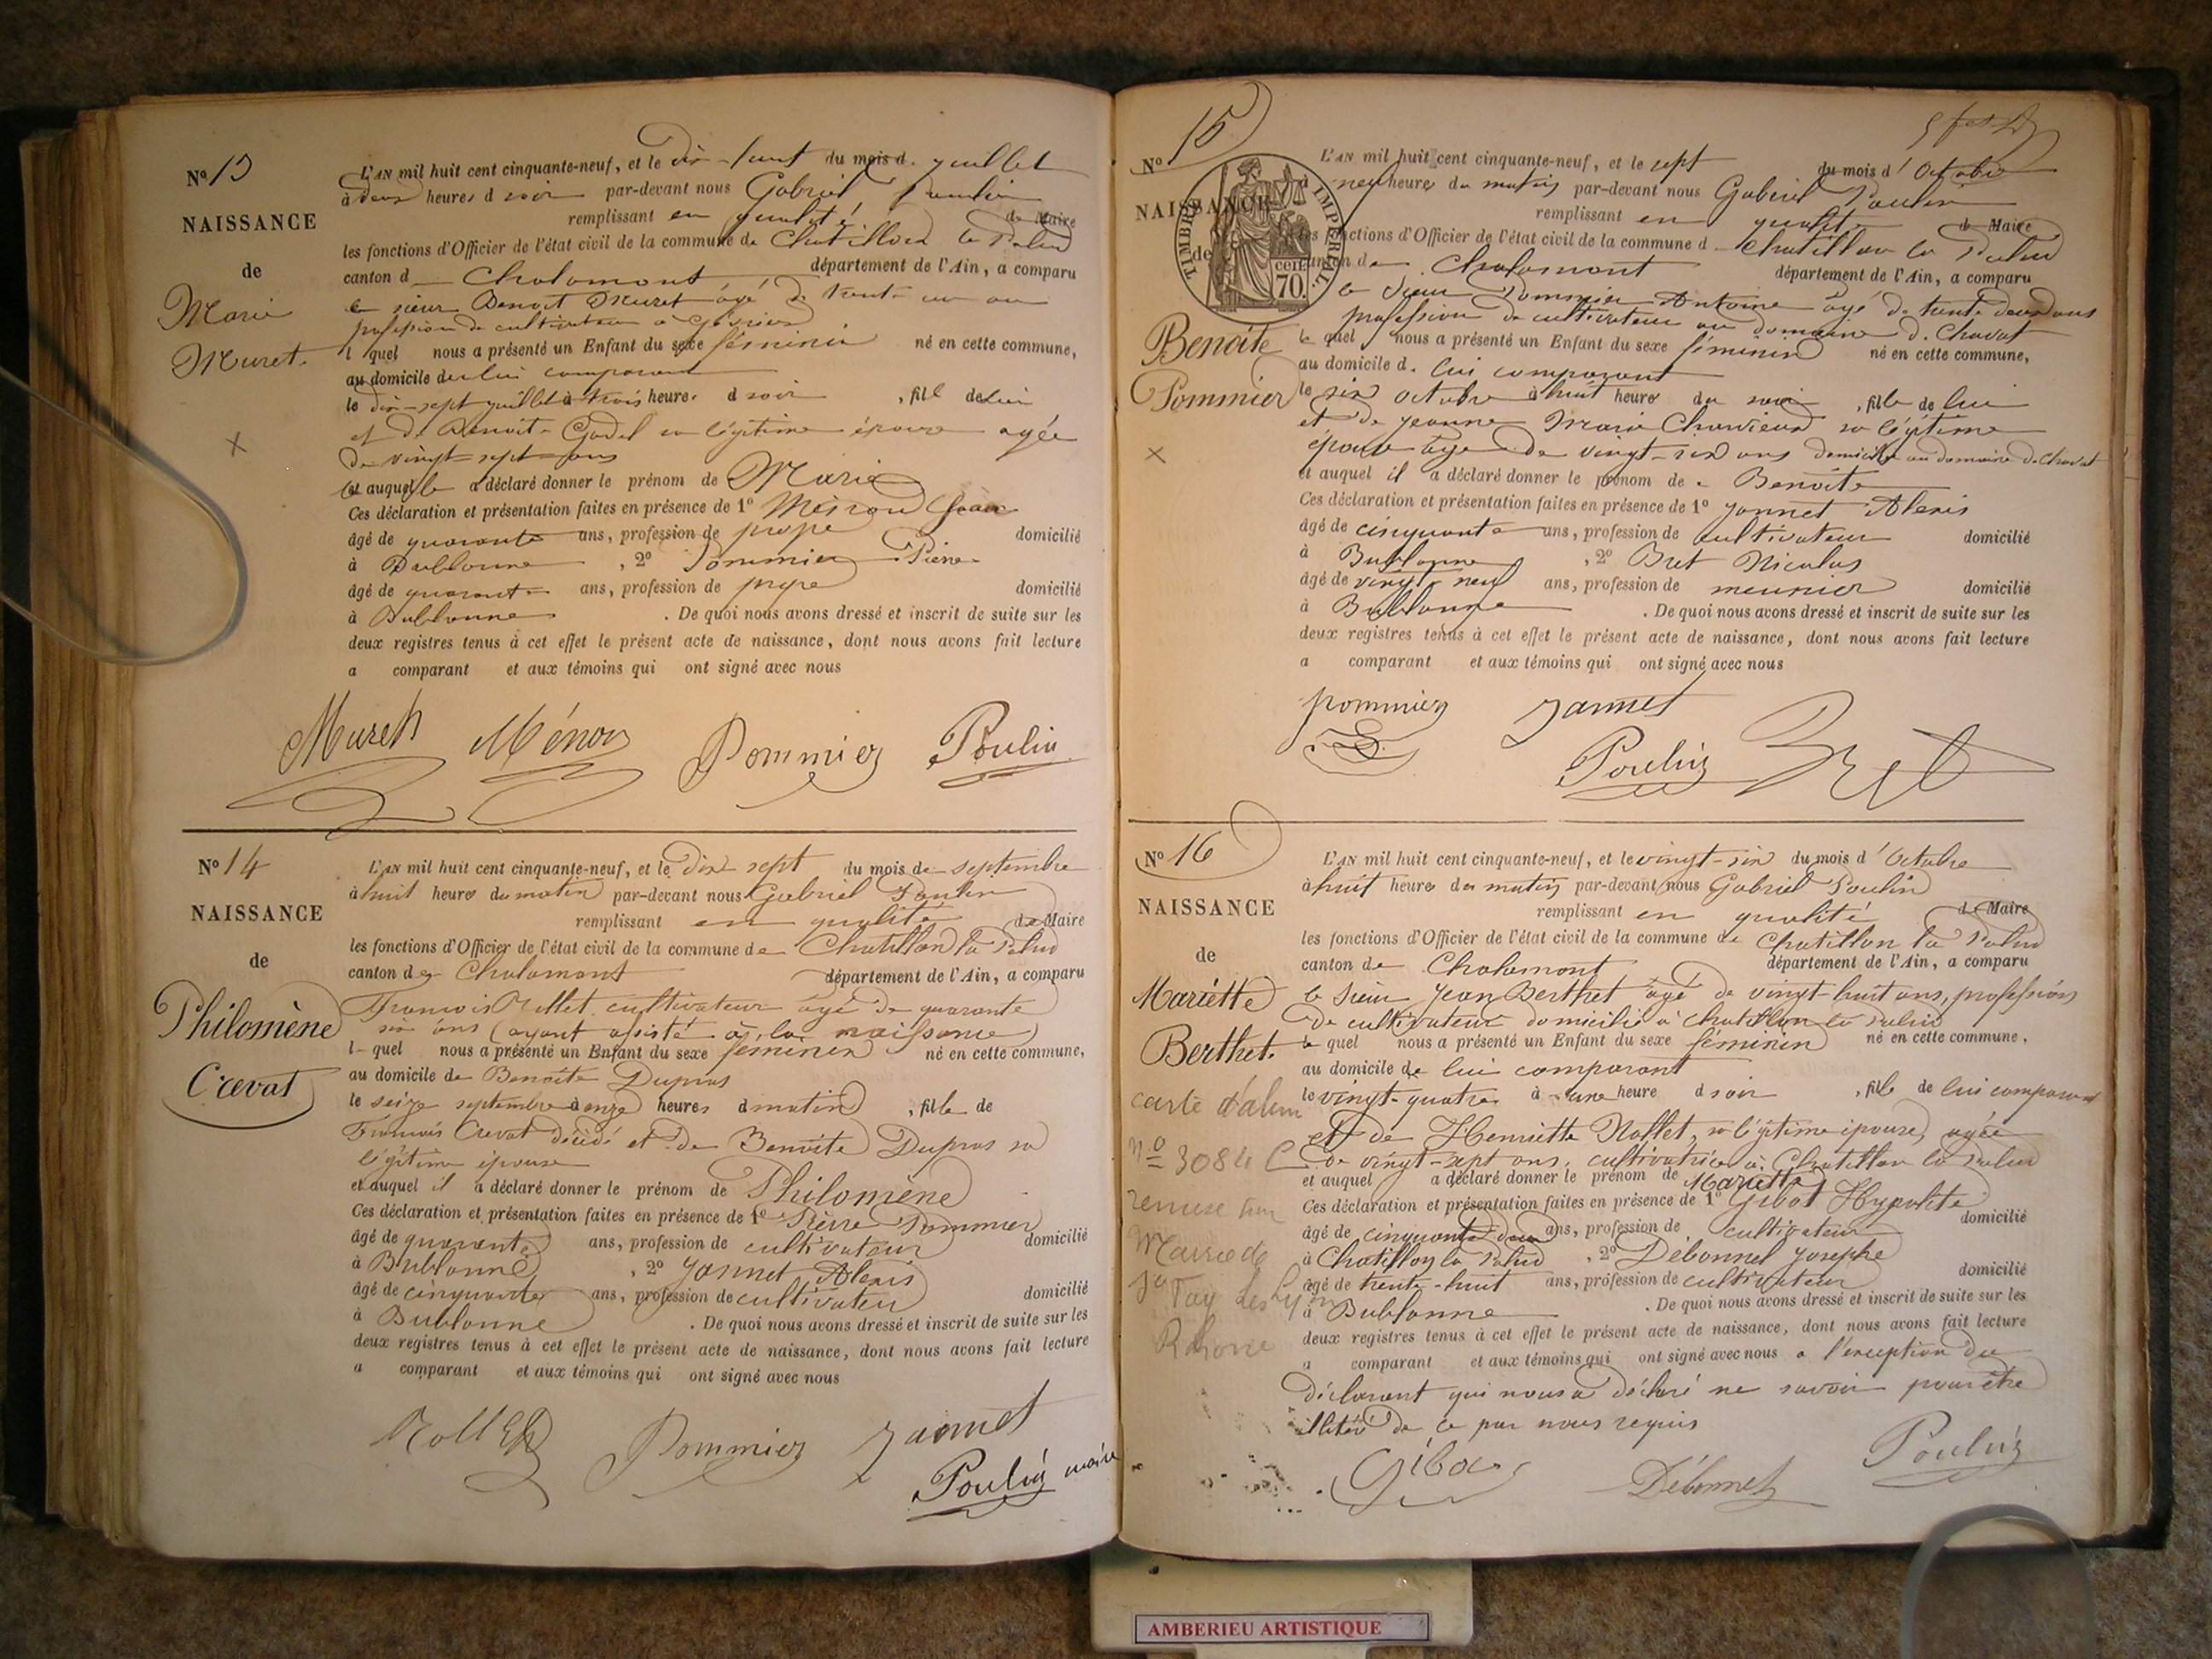 No 13
NAISSANCE
de
Marie
Muret.
L'AN mil huit cent cinquante-neuf, et le dix-huit du mois d juillet
à deux heures d soir par-devant nous Gabriel Poulin
remplissant en qualité de Maire
les fonctions d'Officier de l'état civil de la commune de Chatillon la Palud
canton d Chalamont département de l'Ain, a comparu
le sieur Benoit Muret âgé de trente un an
profession de cultivateur à
l quel nous a présenté un Enfant du sexe féminin né en cette commune,
au domicile de lui comparant
le dix-sept juillet à trois heures d soir , fill de lui
et de Benoite Godel sa légitime épouse agée
de vingt-sept ans
et auquel a déclaré donner le prénom de Marie
Ces déclaration et présentation faites en présence de 1º
âgé de quarante ans, profession de propre domicilié
à Bublanne , 2º Pommier Pierre
âgé de quarante ans, profession de propre domicilié
à Bublanne . De quoi nous avons dressé et inscrit de suite sur les
deux registres tenus à cet effet le présent acte de naissance, dont nous avons fait lecture
a comparant et aux témoins qui ont signé avec nous
Muret Pommier Poulin
No 14
NAISSANCE
de
Philomène
Crevat
L'AN mil huit cent cinquante-neuf, et le dix sept du mois de septembre
à huit heures du matin par-devant nous Gabriel Poulin
remplissant en qualité de Maire
les fonctions d'Officier de l'état civil de la commune de Chatillon la Palud
canton de Chalamont département de l'Ain, a comparu
François Rollet cultivateur âgé de quarante
six ans (ayant assisté à la naissance)
l quel nous a présenté un Enfant du sexe féminin né en cette commune,
au domicile de Benoite Dupras
le seize septembre à onze heures d matin , fille de
François Crevat décédé et de Benoite Dupras sa
légitime épouse
et auquel il a déclaré donner le prénom de Philomène
Ces déclaration et présentation faites en présence de 1º Pierre Pommier
âgé de quarante ans, profession de cultivateur domicilié
à Bublanne , 2º Jannet Alexis
âgé de cinquante ans, profession de cultivateur domicilié
à Bublanne . De quoi nous avons dressé et inscrit de suite sur les
deux registres tenus à cet effet le présent acte de naissance, dont nous avons fait lecture
a comparant et aux témoins qui ont signé avec nous
Rollet Pommier Jannet
Poulin maire
No 15
NAISSANCE
de
TIMBRE IMPÉRIAL
70 cent.
Benoite
Pommier
L'AN mil huit cent cinquante-neuf, et le sept du mois d'Octobre
à neuf heures du matin par-devant nous Gabriel Poulin
remplissant en qualité de Maire
les fonctions d'Officier de l'état civil de la commune d Chatillon la Palud
canton de Chalamont département de l'Ain, a comparu
le Sieur Pommier Antoine âgé de trente deux ans
profession de cultivateur au domaine d. Chavat
le quel nous a présenté un Enfant du sexe féminin né en cette commune,
au domicile d. lui comparant
le six octobre à huit heures du soir , fille de lui
et de Jeanne Marie sa légitime
épouse âgée de vingt-six ans domiciliée au domaine d. Chavat
et auquel il a déclaré donner le prénom de Benoite
Ces déclaration et présentation faites en présence de 1º Jannet Alexis
âgé de cinquante ans, profession de cultivateur domicilié
à Bublanne , 2º Bret Nicolas
âgé de vingt-neuf ans, profession de meunier domicilié
à Bublanne . De quoi nous avons dressé et inscrit de suite sur les
deux registres tenus à cet effet le présent acte de naissance, dont nous avons fait lecture
a comparant et aux témoins qui ont signé avec nous
pommier Jannet
Poulin Bret
No 16
NAISSANCE
de
Mariétte
Berthet.
carte d'alim
nº 3084 C
remise par
Mairie de
Rhone
L'AN mil huit cent cinquante-neuf, et le vingt-six du mois d'Octobre
à huit heures du matin par-devant nous Gabriel Poulin
remplissant en qualité de Maire
les fonctions d'Officier de l'état civil de la commune de Chatillon la Palud
canton de Chalamont département de l'Ain, a comparu
le Sieur Jean Berthet agé de vingt-huit ans, profession
de cultivateur domicilié à Chatillon la Palud
le quel nous a présenté un Enfant du sexe féminin né en cette commune,
au domicile de lui comparant
le vingt-quatre à une heure d soir , fille de lui comparant
et de Henriette Nallet, sa légitime épouse, agée
de vingt-sept ans, cultivatrice à Chatillon la Palud
et auquel a déclaré donner le prénom de Mariétte
Ces déclaration et présentation faites en présence de 1º Gibot Hypolite
âgé de cinquante deux ans, profession de cultivateur domicilié
à Chatillon la Palud , 2º Debonnet Josephe
âgé de trente-huit ans, profession de cultivateur domicilié
à Bublanne . De quoi nous avons dressé et inscrit de suite sur les
deux registres tenus à cet effet le présent acte de naissance, dont nous avons fait lecture
a comparant et aux témoins qui ont signé avec nous a l'exception du
déclarant qui nous a déclaré ne savoir pour être
illitéré de ce par nous requis
Gibot Débonnet Poulin
AMBERIEU ARTISTIQUE